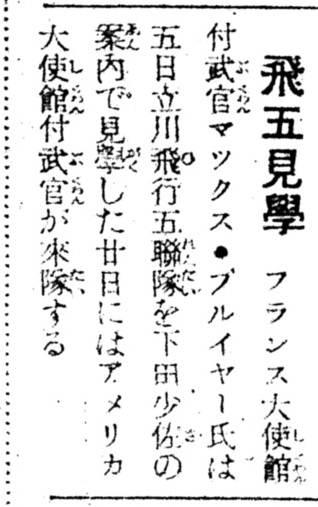 飛五見學　フランス大使館
付武官マックス●ブルイヤー氏は
五日立川飛行五聯隊を下田少佐の
案内で見學した廿日にはアメリカ
大使館付武官が來隊する